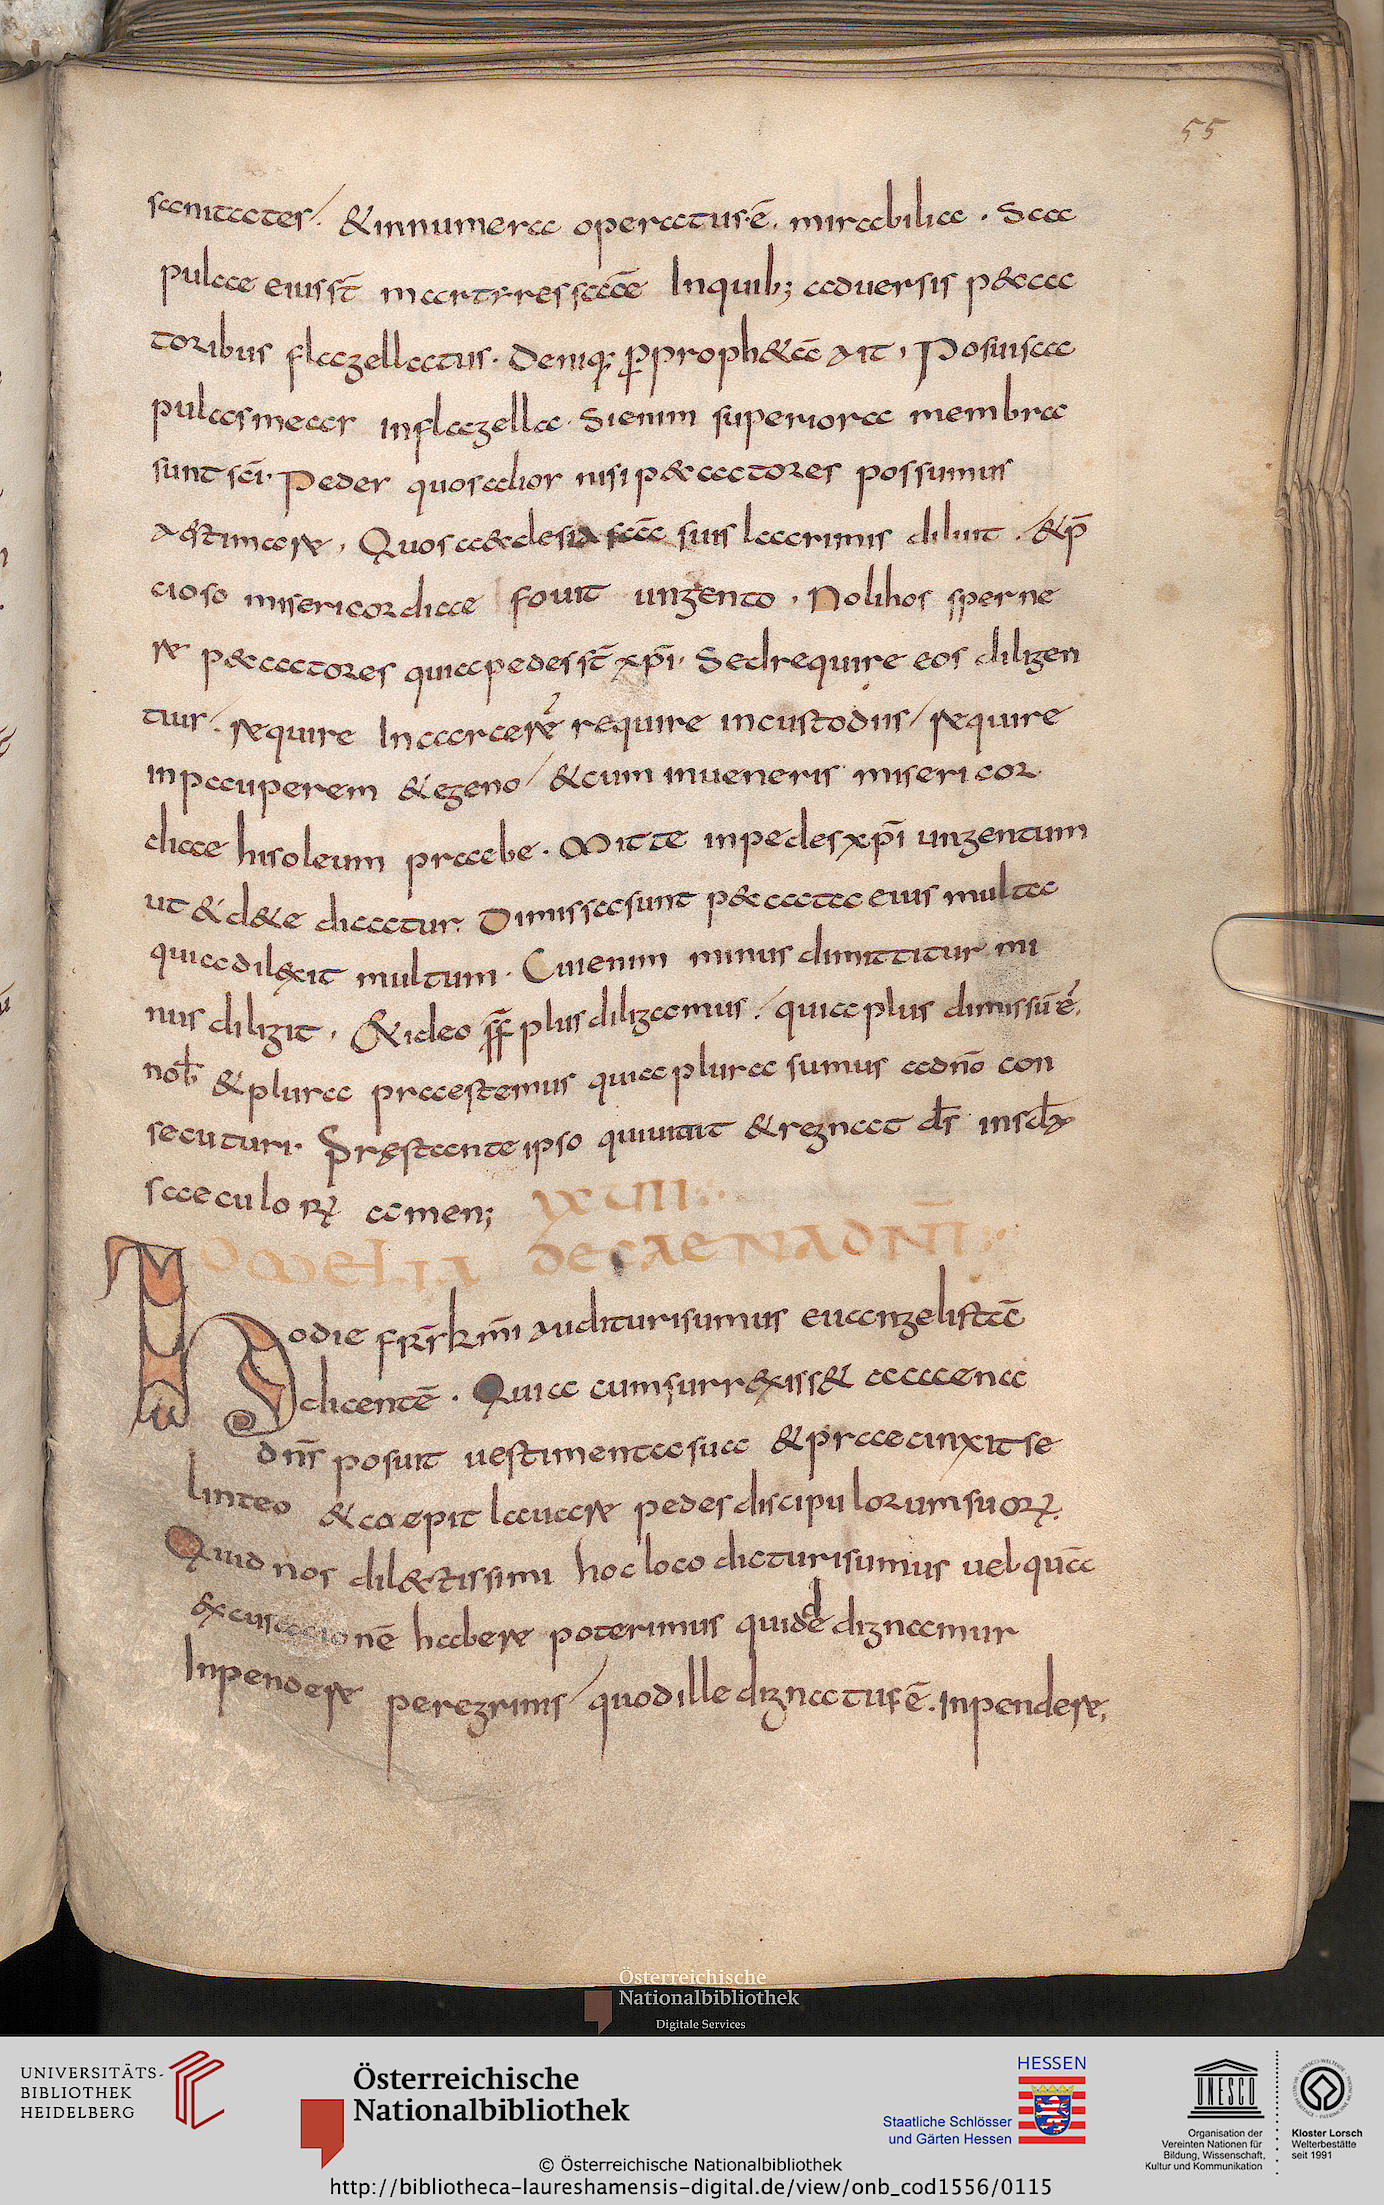 55
sanitates. & innumera operatus ē. mirabilia. Sca
pulae eius st̄ martyres scāe Inquib; aduersis p&cca
toribus flagellatus. Deniq; ꝑproph&ā Ait, Posui sca
pulas meas inflagella. Si enim superiora membra
sunt scī. Pedes quos alios nisi p&cctores possumus
Aestimare, Quos a&clesia scā suis lacrimis diluit. & p̄
cioso misericordiae fouit ungento, Noli hos sperne
re p&ccatores quia pedes st̄ xp̄i. Sed require eos diligen
tius. require Incarcere require incustodiis require
inpauperem & egeno & cum inueneris misericor
diae his oleum praebe. Mitte inpedes xp̄i ungentum
ut & d& e dicatur. Dimissa sunt p&ccata eius multa
quia dilexit multum. Cui enim minus dimittitur mi
nus diligit, & ideo plus diligamus. quia plus dimissū ē.
nob̄ & plura praestemus quia plura sumus adnō con
secuturi. Prestante ipso qui uiuit & regnat ds̄ in
saeculoꝝ amen;
OMELIA DECAENADN̄I
Hodie frr̄ kmī Audituri sumus euangelistā
dicentē. Quia cum surrexiss& a caena
dn̄s posuit uestimenta sua & praecinxit se
linteo & coepit lauare pedes discipulorum suoꝝ.
Quid nos dil&tissimi hoc loco dicturi sumus uel quā
excusacionē habere poterimus qui dedignamur
Inpendere peregrinis quod ille dignatus ē. inpendere,
Österreichische
Nationalbibliothek
Digitale Services
UNIVERSITÄTS-
BIBLIOTHEK
HEIDELBERG
Österreichische
Nationalbibliothek
HESSEN
Staatliche Schlösser
und Gärten Hessen
UNESCO
Organisation der
Vereinten Nationen für
Bildung, Wissenschaft,
Kultur und Kommunikation
Kloster Lorsch
Welterbestätte
seit 1991
© Österreichische Nationalbibliothek
http://bibliotheca-laureshamensis-digital.de/view/onb_cod1556/0115